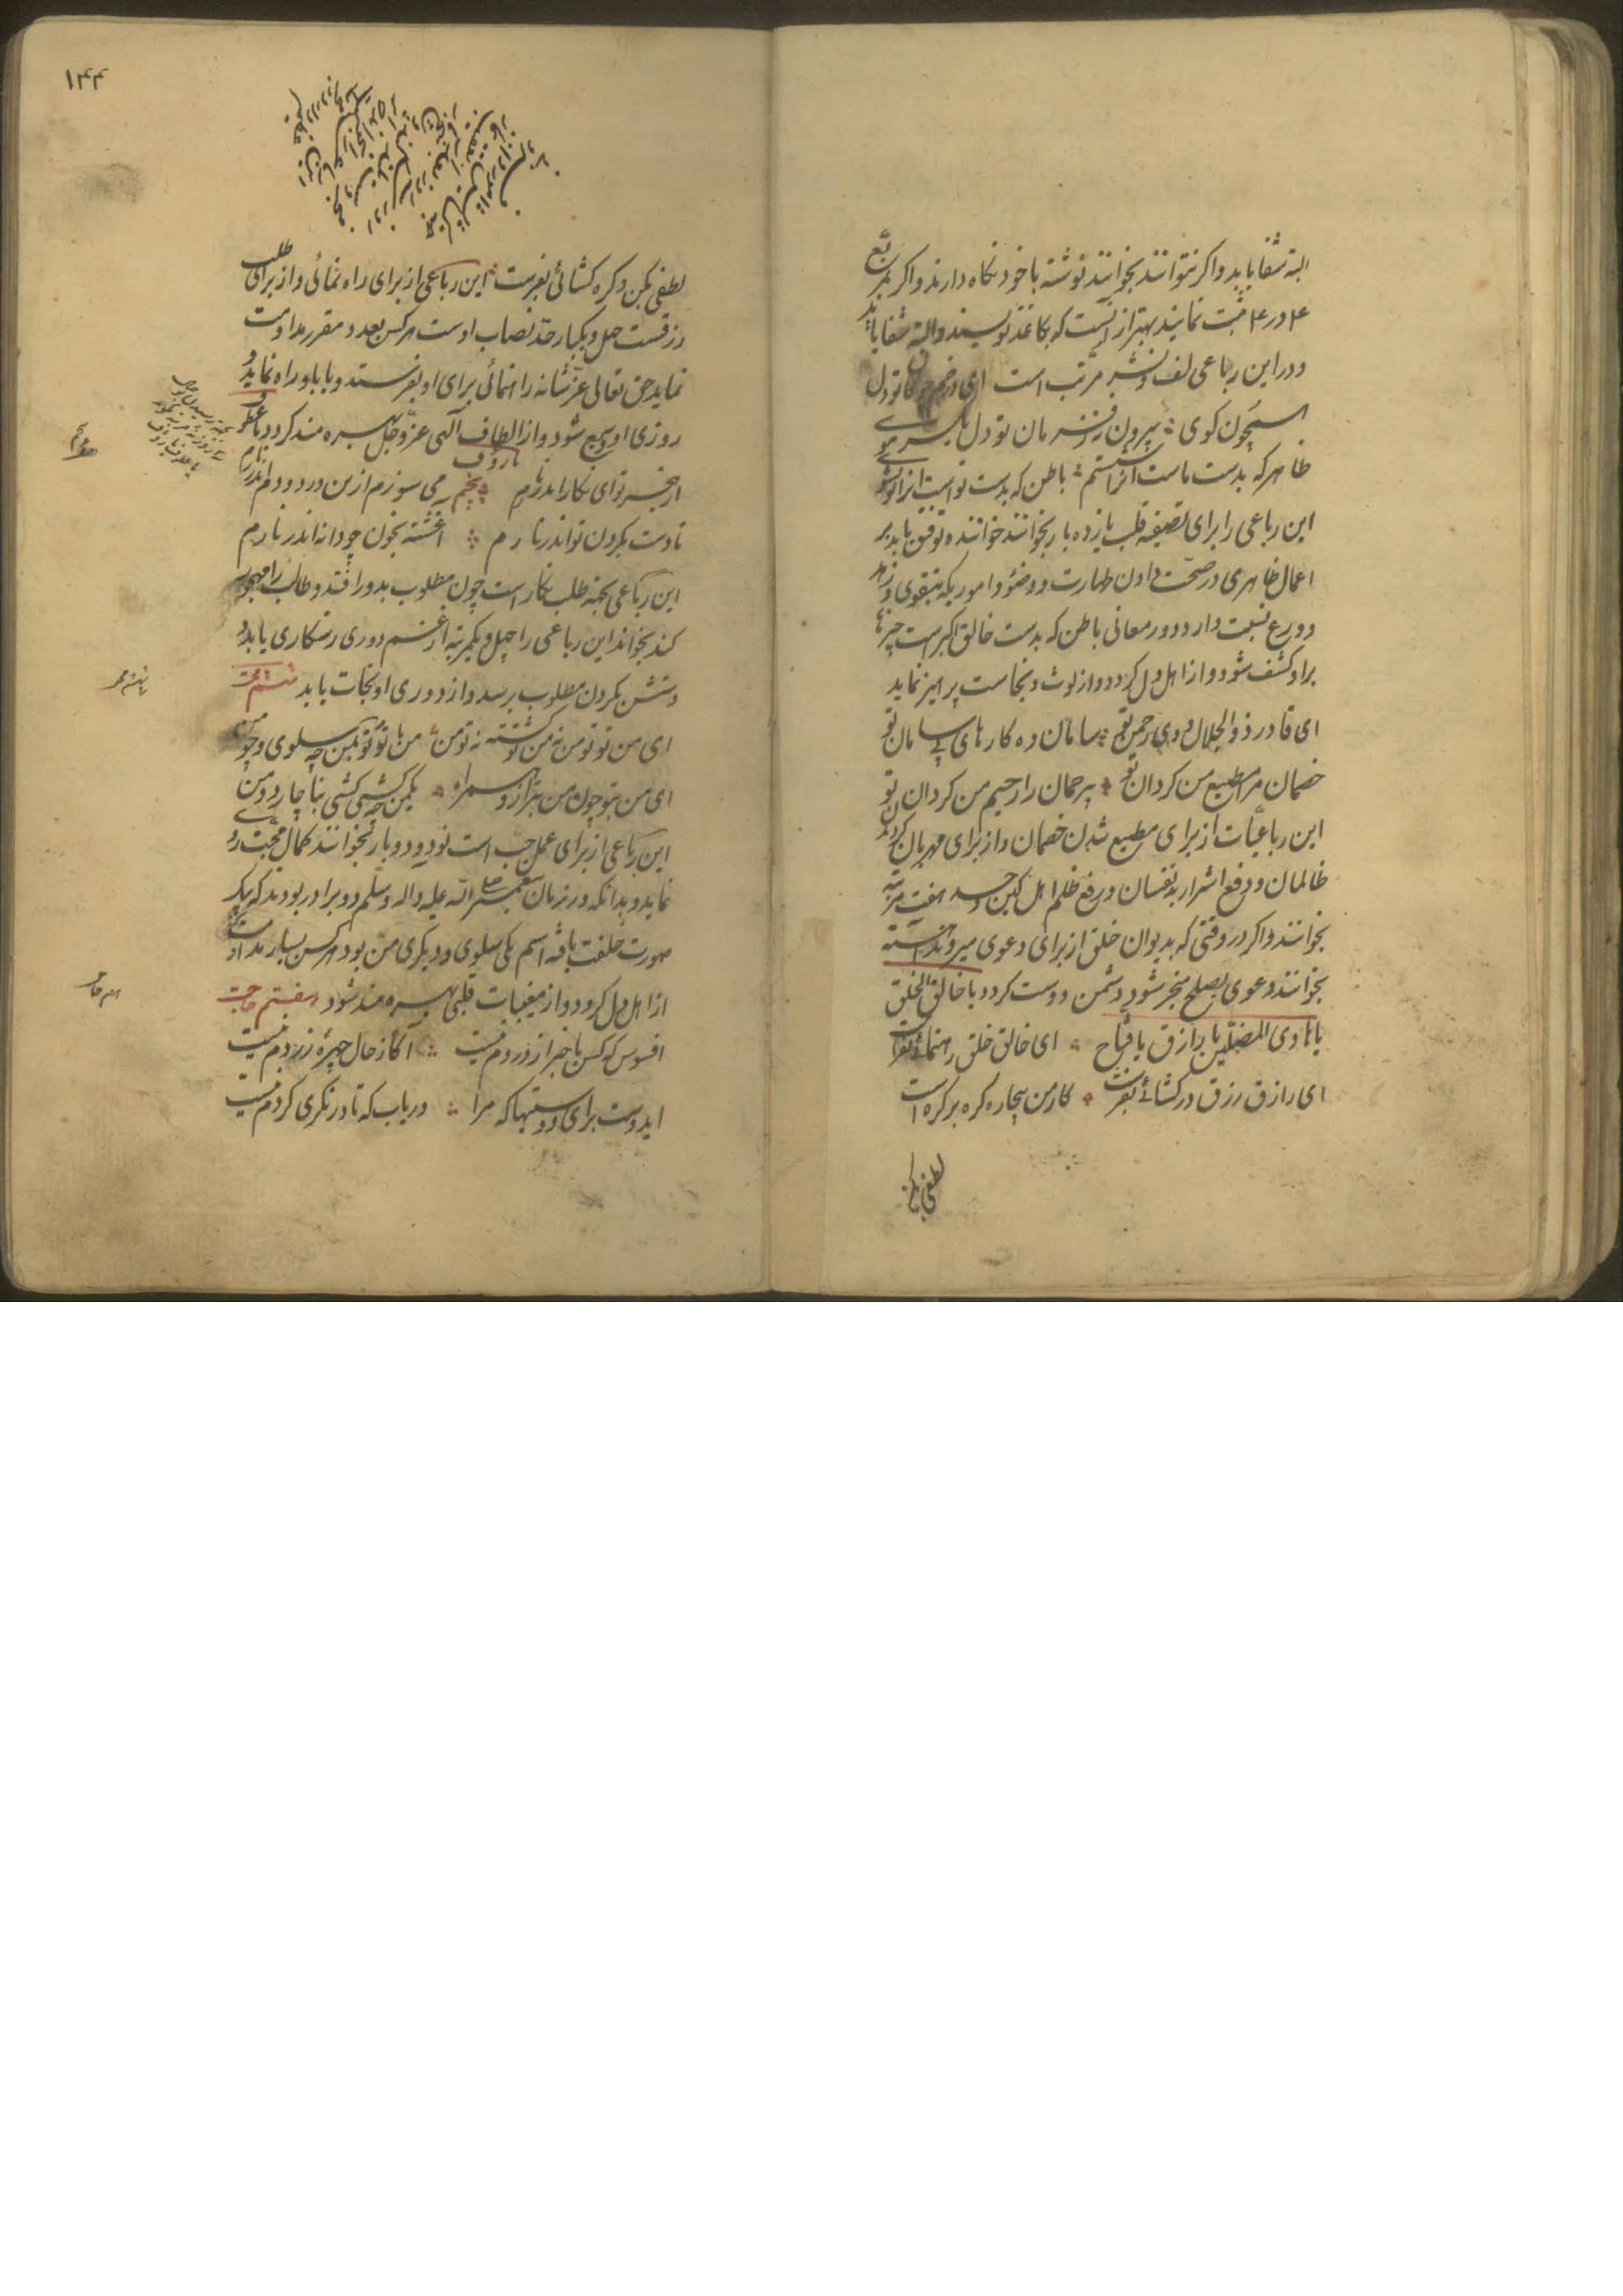 البته شفا یابد و اکر نتوانند بخوانند نوشته با خود نکاه دارند و اکر بمربع
۴ در ۴ ثبت نمایند بهتر از آنست که بکاغذ نویسند والبته شفا یابند
و در این رباعی لف و نشر مرتب است ای در خم چوکان تو دل
همچون کوی بیرون ز فرمان تو دل یکسر موی
ظاهر که بدست ماست آنرا شستیم باطن که بدست تواست آنرا تو بشوی
این رباعی را برای تصفیه قلب یازده بار بخوانند خواننده توفیق یابد بر
اعمال ظاهری در صحت دادن طهارت و وضو و اموریکه بتقوی و زهد
و ورع نسبت دارد و در معانی باطن که بدست خالق اکبر است چیزها
بر او کشف شود و از اهل دل کردد و از لوث و نجاست پرهیز نماید
ای قادر ذوالجلال وی رحمن تو سامان ده کارهای بی سامان تو
خصمان مرا مطیع من کردان تو بیرحمان را رحیم من کردان تو
این رباعیات از برای مطیع شدن خصمان و از برای مهربان کردن
ظالمان و دفع اشرار بدنفسان و رفع ظلم اهل کین و حسد هفت مرتبه
بخوانند و اکر در وقتی که بدیوان خلق از برای دعوی میروند آهسته
بخوانند دعوی بصلح منجر شود و دشمن دوست کردد یا خالق الخلق
یا هادی المضلین یا رازق یا فتاح ای خالق خلق رهنمائی بفرست
ای رازق رزق در کشائی بفرست کار من بیچاره کره بر کره است
لطفی بکن
۱۴۴
لطفی بکن و کره کشائی بفرست این رباعی از برای راه نمائی و از برای طلب
رزقست چهل و یکبار حد نصاب اوست هر کس بعدد مقرر مداومت
نماید حق تعالی عز شانه راهنمائی برای او بفرستد و یا باو راه نماید و
روزی او وسیع شود و از الطاف الهی عز و جل بهره مند کردد یا عطوف
یا رؤف
از هجر تو ای نکار اندر نارم پنجم می سوزم ازین درد و دم اندر نارم
تا دست بکردن تو اندر نارم آغشته بخون چو دانه اندر نارم
این رباعی بجهة طلب نکار است چون مطلوب بدور افتد و طالب را مهجور
کند بخواند این رباعی را چهل و یکمرتبه از غم دوری رستکاری یابد و
دستش بکردن مطلوب برسد و از دوری او نجات یابد ششم محبت
ای من تو تو من نه من تو کشته نه تو من من با تو تو بمن چه سلوی و چو من
ای من بتو چون من بترازو همراه یکمن چه کشی کشی بناچار دو من
این رباعی از برای عمل حب است نود و دو بار بخوانند کمال محبت رو
نماید و بدانکه در زمان پیغمبر صلی الله علیه واله وسلم دو برادر بودند که بیک
صورت خلقت یافته اسم یکی سلوی و دیکری من بود هر کس بسیار مداومت
از اهل دل کردد و از مغیبات قلبی بهره مند شود هفتم حاجت
افسوس که کس با خبر از دردم نیست آکاه ز حال چهره زردم نیست
ایدوست برای دوستیها که مرا دریاب که تا در نکری کردم نیست